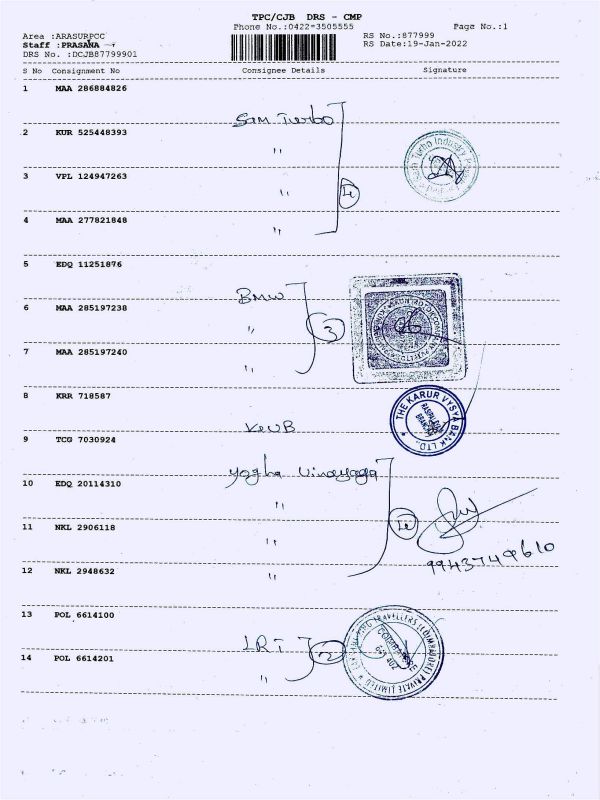 TPC/CJB DRS - CMP
Phone No.:0422-3505555 Page No.:1
Area :ARASURPCC RS No.:877999
Staff :PRASANA RS Date:19-Jan-2022
DRS No. :DCJB87799901
S No Consignment No Consignee Details Signature
1 MAA 286884826
Sam Turbo
2 KUR 525448393
"
3 VPL 124947263
"
4 MAA 277821848
"
5 EDQ 11251876
BMW
6 MAA 285197238
" 3
7 MAA 285197240
"
8 KRR 718587
THE KARUR VYSYA BANK LTD
KVB
9 TCG 7030924
Yogha Vinayaga
10 EDQ 20114310
"
11 NKL 2906118
"
9943749610
12 NKL 2948632
"
13 POL 6614100
LRT 2
14 POL 6614201
"
TRAVELLERS (COIMBATORE) PRIVATE LIMITED